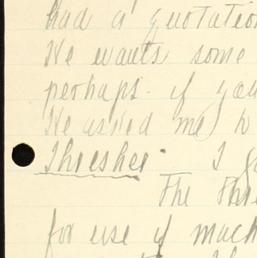 had a quotation
He wants some
perhaps. if you
He asked me to
Thresher. I
The Thre
for use of mach